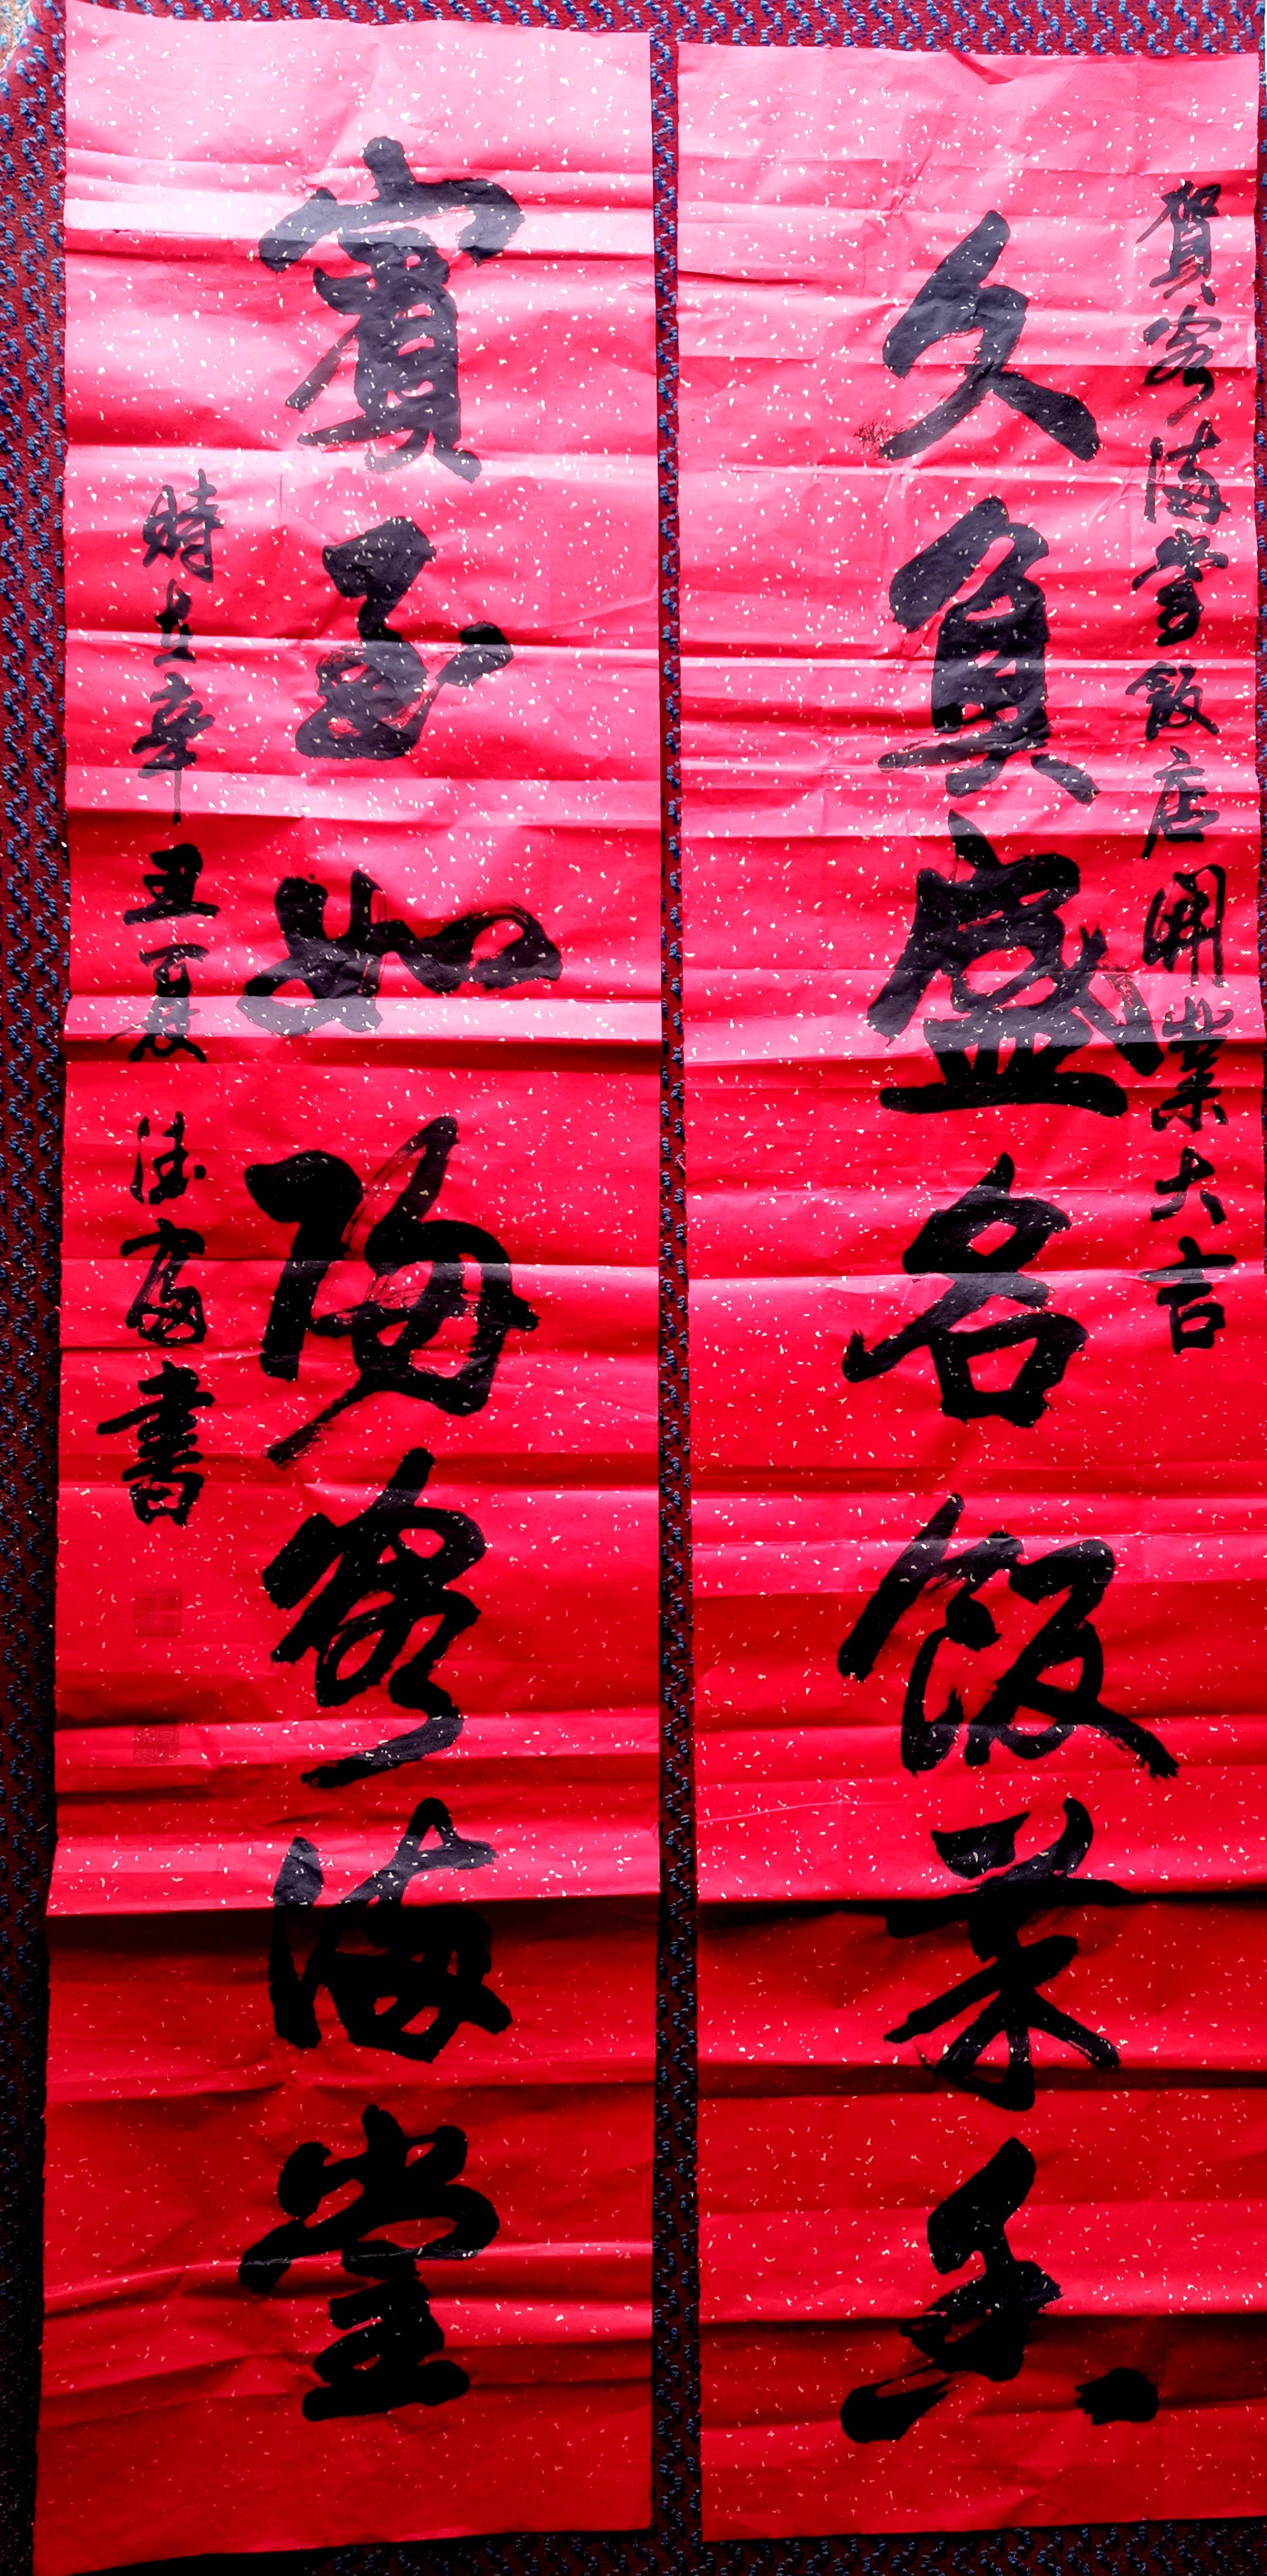 賀客海堂飯店開業大吉
久負盛名飯菜香
賓至如歸客海堂
時在辛丑夏 富書